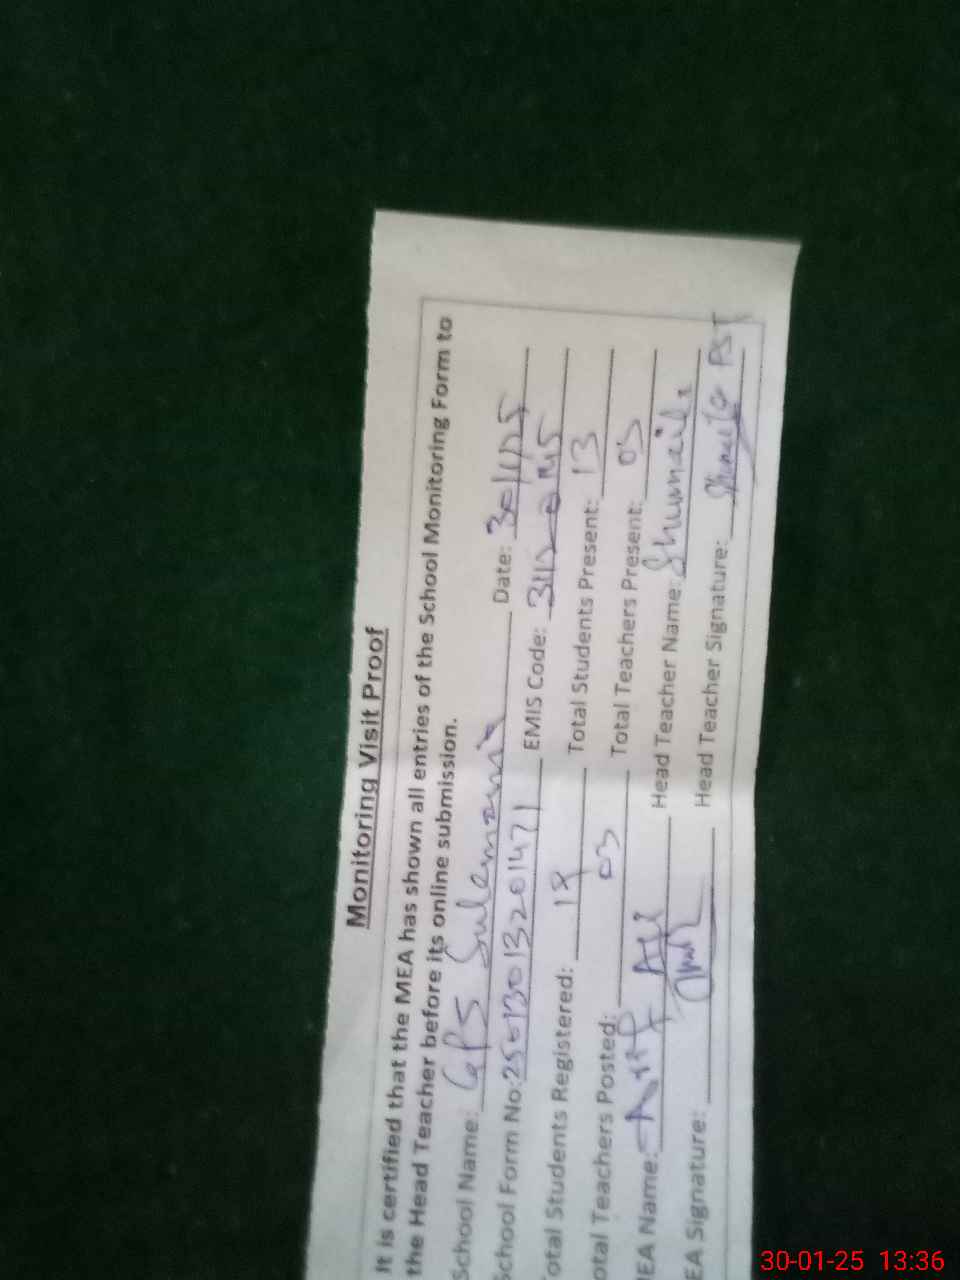 Monitoring Visit Proof
It is certified that the MEA has shown all entries of the School Monitoring Form to
the Head Teacher before its online submission.
School Name: GPS Sulemania Date: 30/1/25
School Form No: 25013013201471 EMIS Code: 31120145
otal Students Registered: 18 Total Students Present: 13
otal Teachers Posted: 03 Total Teachers Present: 03
EA Name: Arif Ali Head Teacher Name: Shumaila
EA Signature: Head Teacher Signature: Shumaila PST
30-01-25 13:36